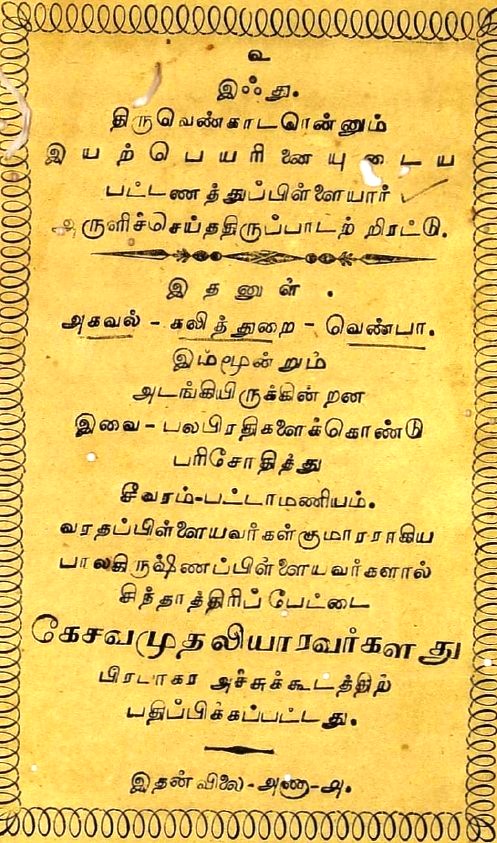 உ
இஃது.
திருவெண்காடரென்னும்
இயற்பெயரினையுடைய
பட்டணத்துப்பிள்ளையார்
அருளிச்செய்ததிருப்பாடற் றிரட்டு.
இதனுள் .
அகவல் - கலித்துறை - வெண்பா.
இம்மூன்றும்
அடங்கியிருக்கின்றன
இவை - பலபிரதிகளைக்கொண்டு
பரிசோதித்து
சீவரம்-பட்டாமணியம்.
வரதப்பிள்ளையவர்கள்குமாரராகிய
பாலகிருஷ்ணப்பிள்ளையவர்களால்
சிந்தாத்திரிப் பேட்டை
கேசவமுதலியாரவர்களது
பிரபாகர அச்சுக்கூடத்திற்
பதிப்பிக்கப்பட்டது.
இதன்விலை-அணா-அ.